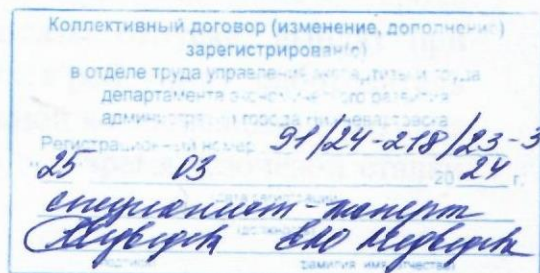 Коллективный договор (изменение, дополнение)
зарегистрирован(о)
в отделе труда управления экспертизы и труда
департамента экономического развития
администрации города Нижневартовска
Регистрационный номер 91/24-218/23-3
25 03 2024 г.
(дата регистрации)
специалист-эксперт
(должность)
Медведева
подпись фамилия имя отчество